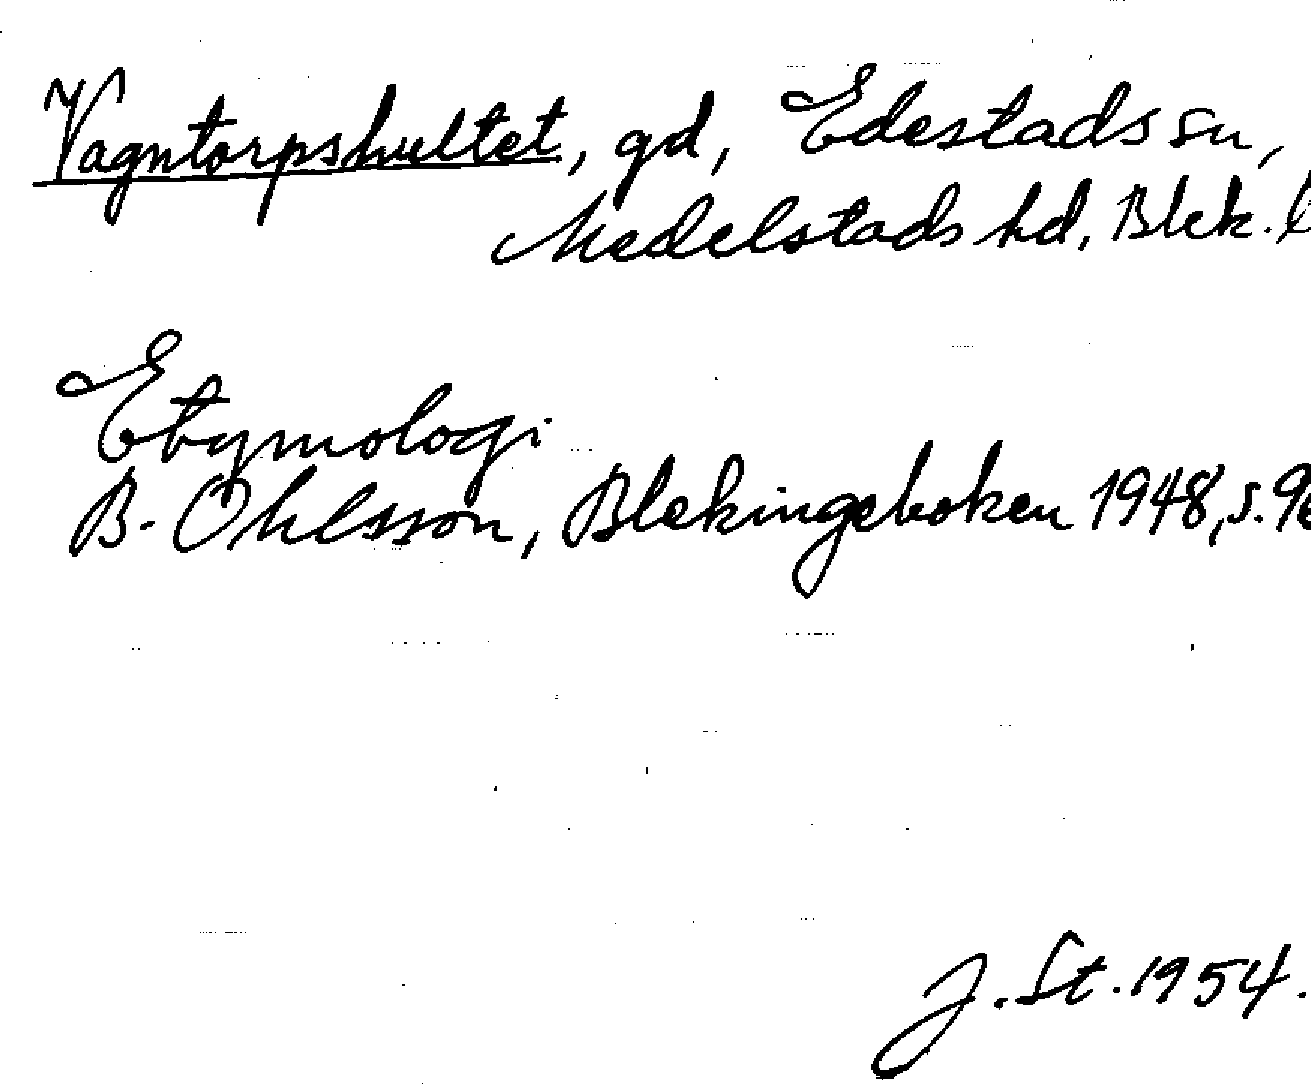 Vagntorpshultet, gd, Edestads sn,
Medelstads hd, Blek.
Etymologi
B. Ohlsson, Blekingeboken 1948, s.
J. St. 1954.